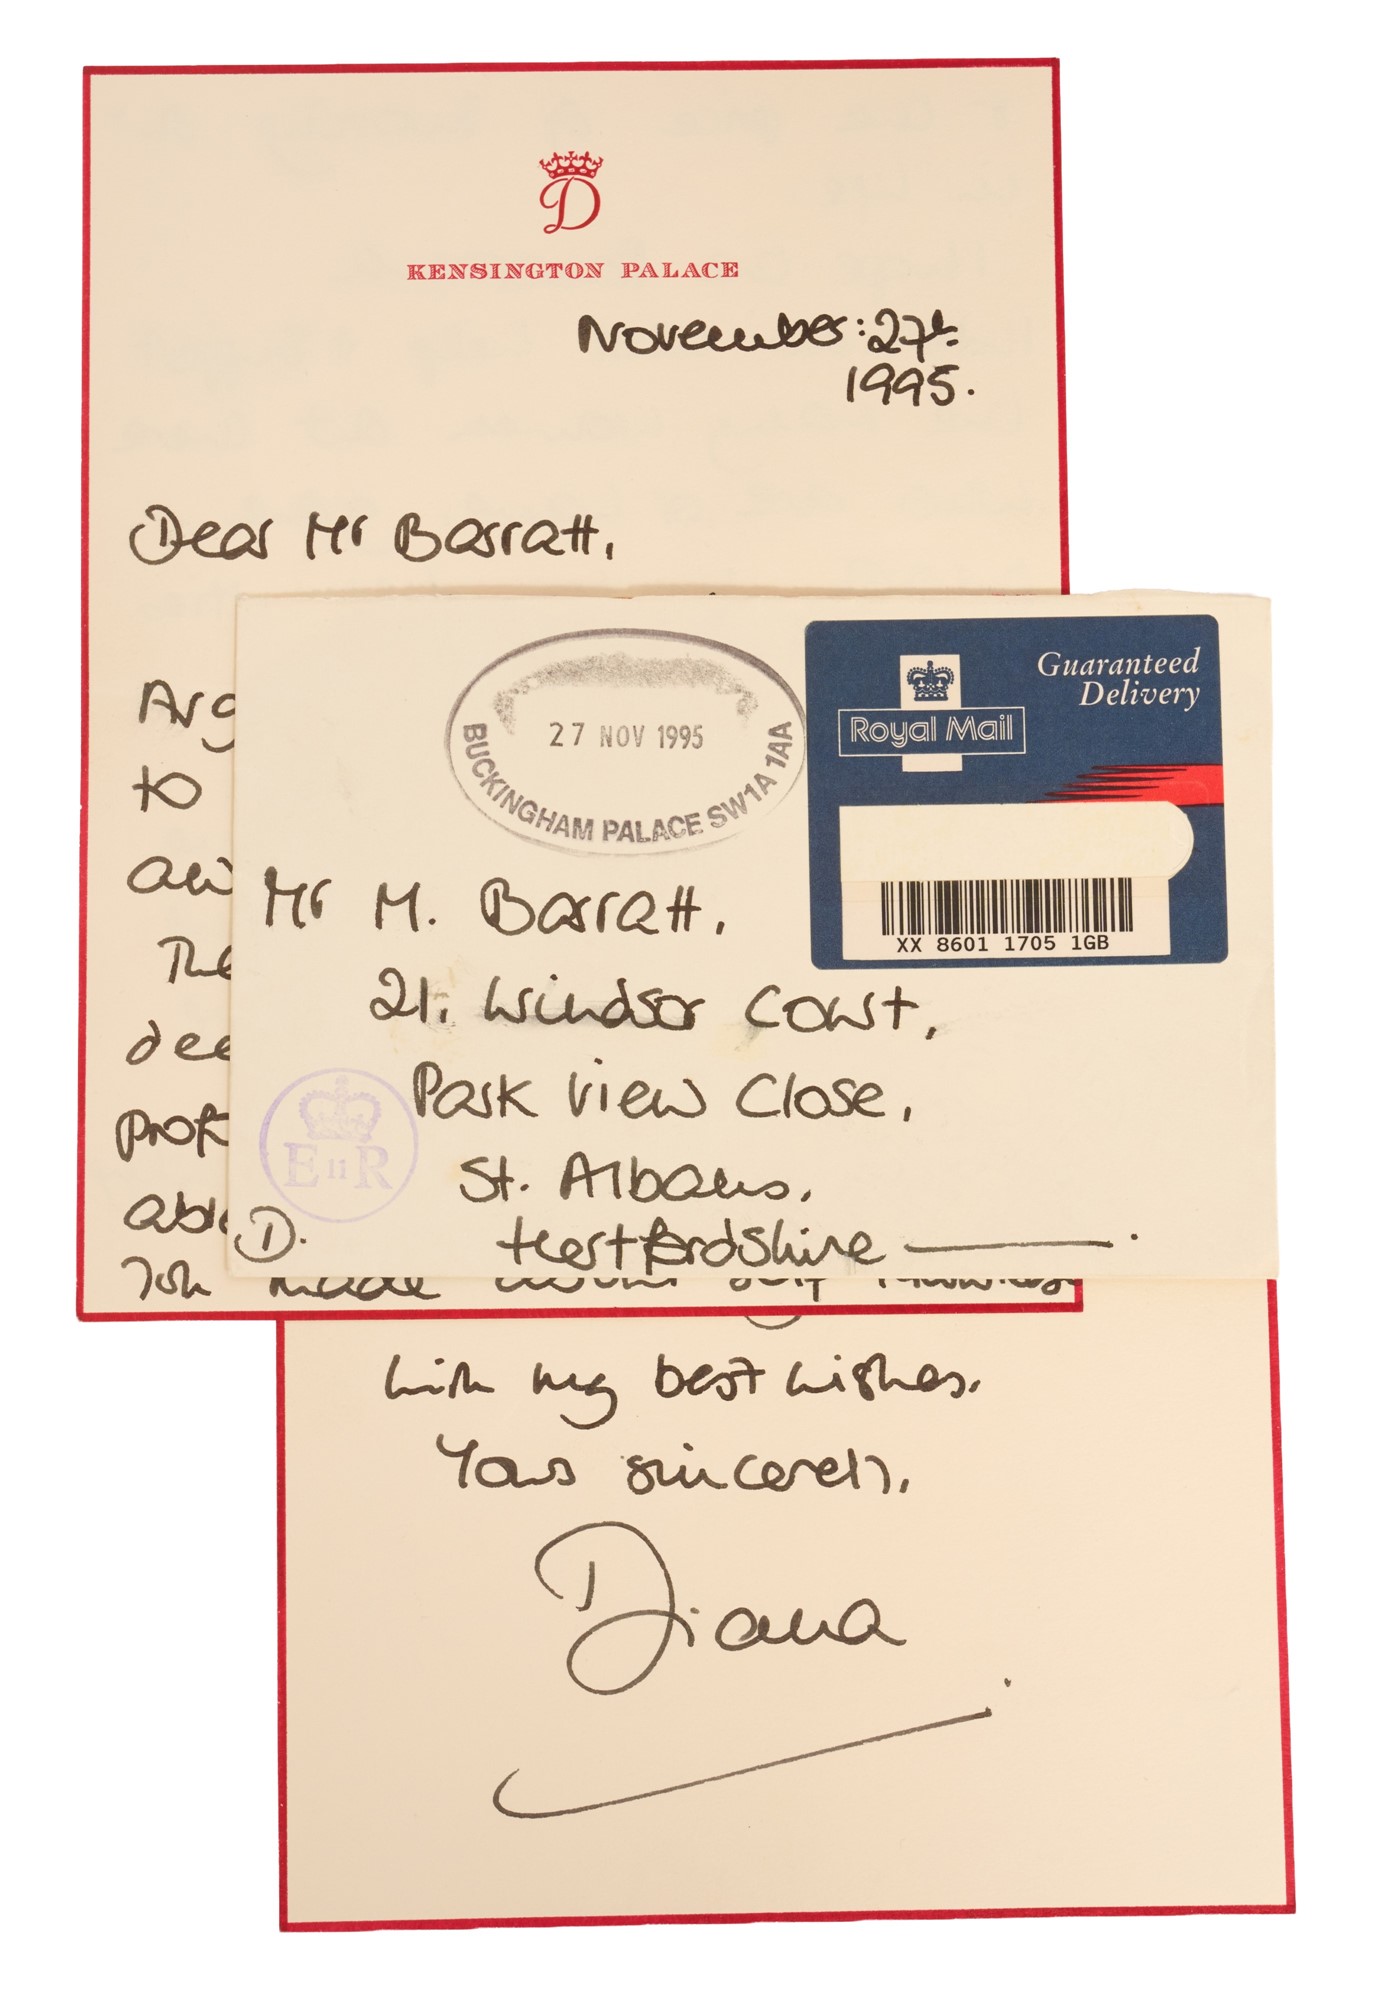 D
KENSINGTON PALACE
November: 27th
1995.
Dear Mr Barratt,
Arg
to
The
dee
prof
able
You made
27 NOV 1995
BUCKINGHAM PALACE SW1A 1AA
Guaranteed
Delivery
Royal Mail
XX 8601 1705 1GB
Mr M. Barratt,
21. Windsor Court,
Park View Close,
St. Albans,
Hertfordshire
E II R
D.
With my best wishes,
Yours sincerely,
Diana